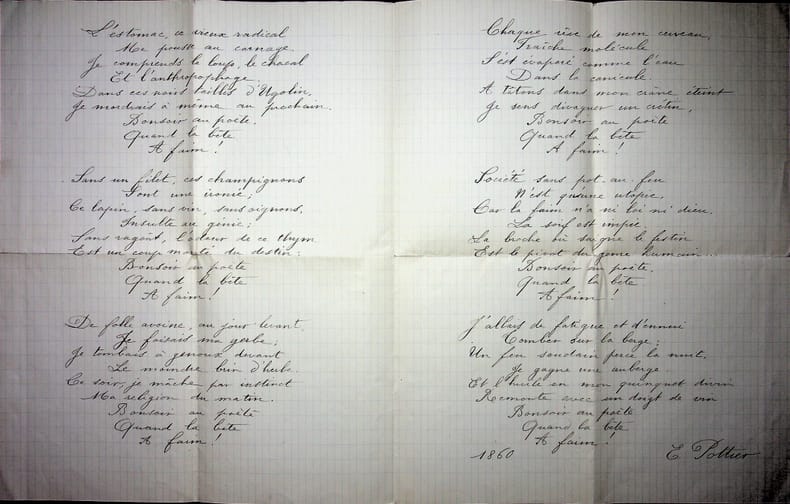 L'éstomac, ce vieux radical
Me pousse au carnage.
Je comprends le loup, le chacal
Et l'anthropophage.
Dans ces noirs taillis d'Ugolin,
Je mordrais à même au prochain.
Bonsoir au poëte.
Quand la bête
A faim!
Sans un filet, ces champignons
Sont une ironie;
Ce lapin, sans vin, sans oignons,
Insulte au génie;
Sans ragoût, l'odeur de ce thym
Est un coup monté du destin:
Bonsoir au poëte
Quand la bête
A faim!
De folle avoine, au jour levant,
Je faisais ma gerbe;
Je tombais à genoux devant
Le moindre brin d'herbe.
Ce soir, je mâche par instinct
Ma religion du matin.
Bonsoir au poëte
Quand la bête
A faim!
Chaque rêve de mon cerveau,
Fraîche molécule
S'est évaporé comme l'eau
Dans la canicule.
A tâtons dans mon crâne éteint
Je sens divaguer un crétin,
Bonsoir au poëte
Quand la bête
A faim!
Société sans pot-au-feu
N'est qu'une utopie,
Car la faim n'a ni loi ni dieu,
La soif est impie.
La broche où saigne le festin
Est le pivot du genre humain...
Bonsoir au poëte.
Quand la bête
A faim!
J'allais de fatigue et d'ennui
Tomber sur la berge;
Un feu soudain perce la nuit,
Je gagne une auberge.
Et l'huile en mon quinquet divin
Remonte avec un doigt de vin
Bonsoir au poëte
Quand la bête
A faim!
1860 E. Pottier